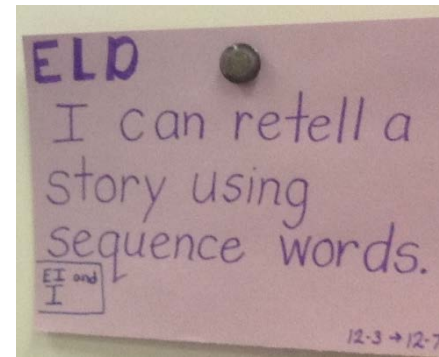 ELD
I can retell a
story using
sequence words.
EI and
I
12-3 → 12-7